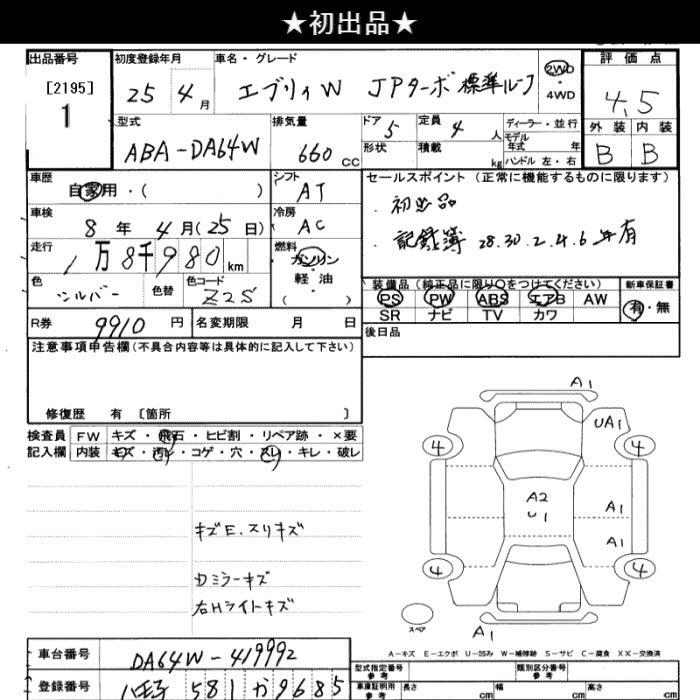 ★初出品★
出品番号 初度登録年月 車名・グレード 評価点
[2195]
1
25 4 月 エブリィW JPターボ 標準ルーフ
2WD
4WD
4.5
型式 排気量 ドア 定員 ディーラー・並行 外装 内装
ABA-DA64W 660 CC 5 4 人
モデル年式 年
形状 積載 kg ハンドル 左・右 B B
車歴 シフト セールスポイント (正常に機能するものに限ります)
自家用・( ) AT
・初出品
車検 冷房
8 年 4 月 (25 日) AC
・記録簿 28.30.2.4.6年有
走行 燃料
1 万 8千980 km ガソリン
軽油
( )
色 色替 色コード
シルバー Z2S
装備品 (純正品に限り〇をつけてください) 新車保証書
PS PW ABS エアB AW 有・無
SR ナビ TV カワ
R券 9910 円 名変期限 月 日
後日品
注意事項申告欄 (不具合内容等は具体的に記入して下さい)
修復歴 有 [箇所 ]
検査員 FW キズ・飛石・ヒビ割・リペア跡・×要
記入欄 内装 キズ・汚れ・コゲ・穴・スレ・キレ・破レ
A1
UA1
4 4
A2
U1
A1
A1
4 4
スペア
A1
キズE.スリキズ
Dミラーキズ
右Hライトキズ
A-キズ E-エクボ U-凹み W-補修跡 S-サビ C-腐食 XX-交換済
車台番号 DA64W-419992
型式指定番号 参考 類別区分番号 参考
登録番号 八王子 581 か 9685
車庫証明用 参考 長さ cm 幅 cm 高さ cm